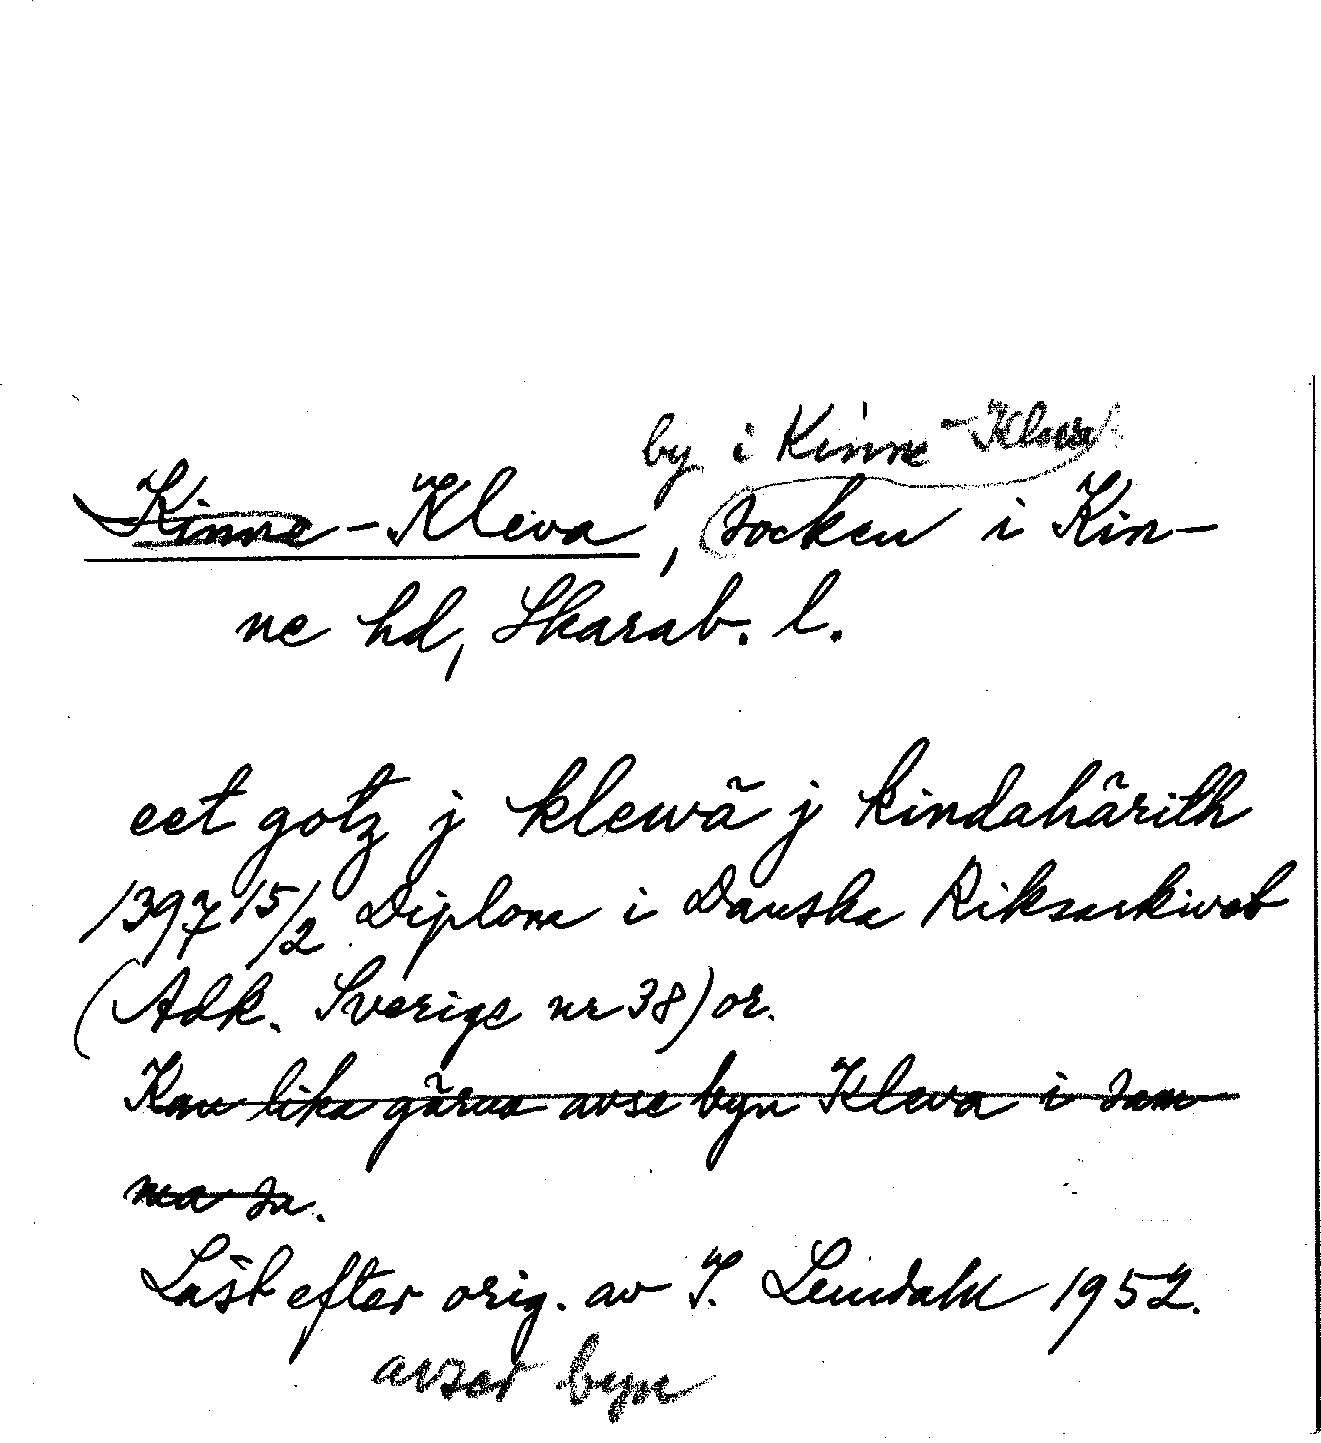 by i Kinne-Kleva
Kinne-Kleva, socken i Kin-
ne hd, Skarab. l.
eet gotz j klewä j kindahärith
1397 15/2 Diplom i Danska Riksarkivet
(Adk. Sverige nr 38) or.
Kan lika gärna avse byn Kleva i sam-
ma sn.
Läst efter orig. av I. Lundahl 1952.
avser byn